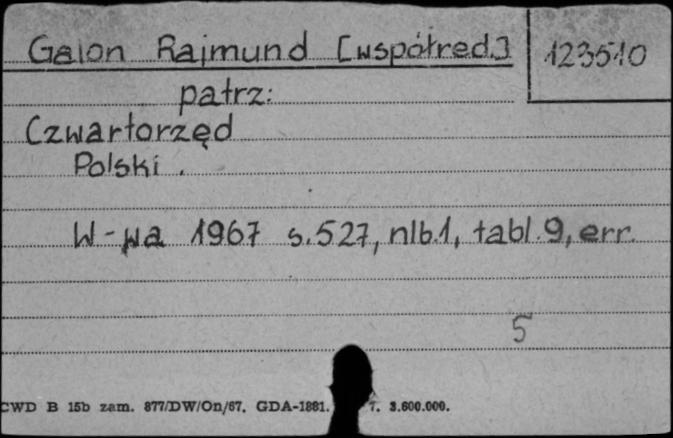 Galon Rajmund [współred.] 123510
patrz:
Czwartorzęd
Polski.
W-wa 1967 s.527, nlb.1, tabl.9, err.
5
CWD B 15b zam. 877/DW/On/67. GDA-1881. 7. 3.600.000.